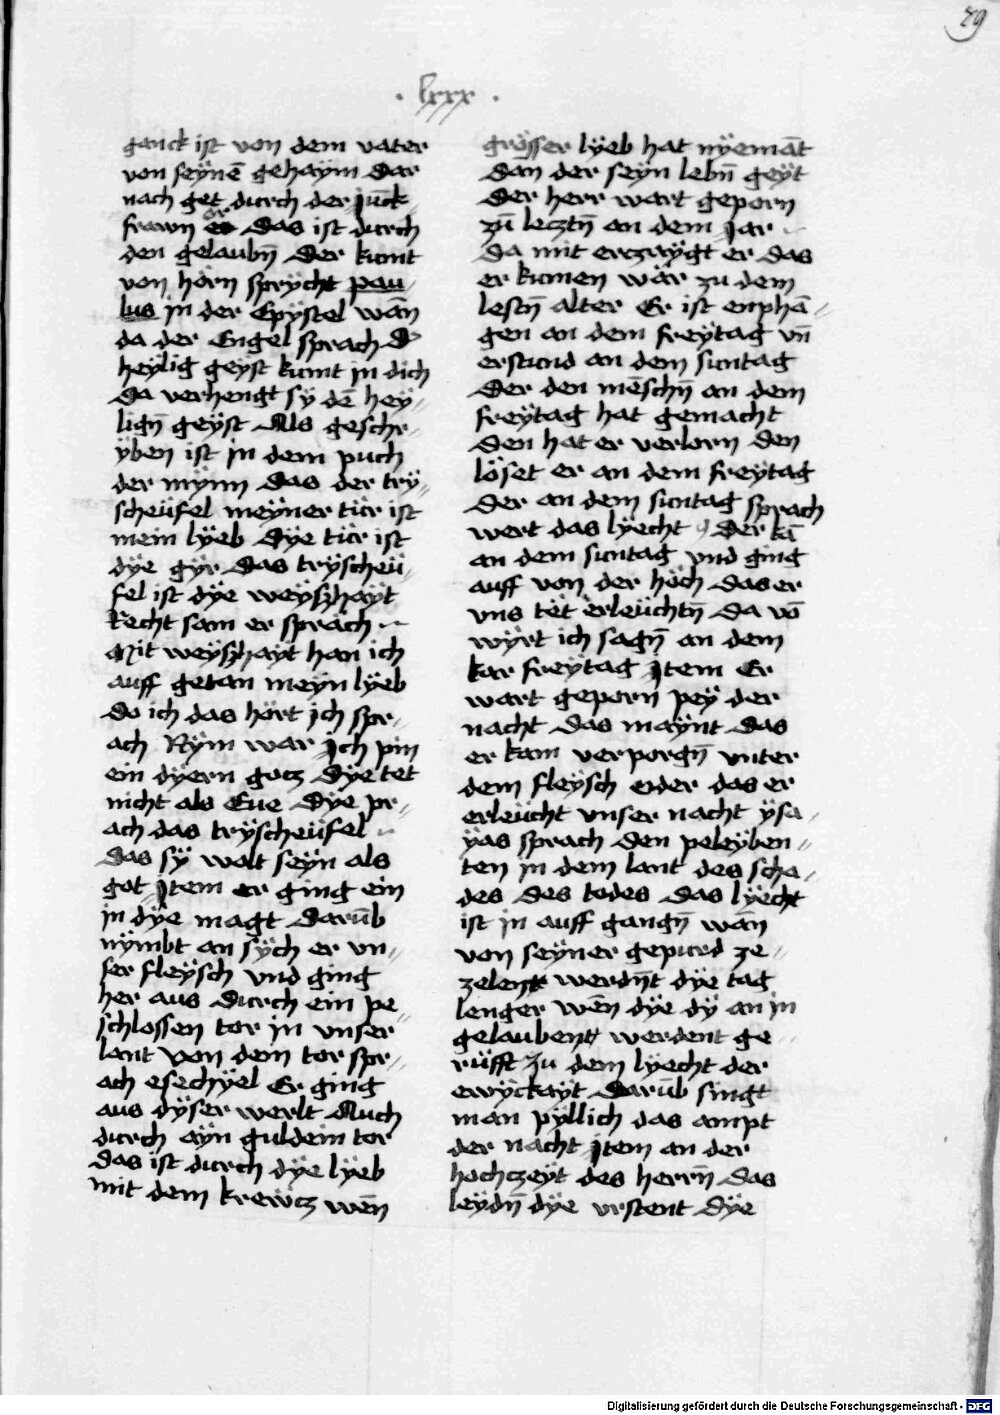 79
· lxxx ·
ganck ist von dem vater
von seÿnē gehaÿm dar
nach get durch der Jūck
frawn or das ist durch
den gelaubn̄ der kumt
von hörn sprÿcht pau
lus in der Epÿstel wān
da der Engel sprach d'
heÿlig geÿst kumt in dich
da verhengt sÿ dē heÿ-
lign̄ geÿst Als geschr-
ÿben ist in dem puch
der mÿnn das der trÿ-
scheüfel meÿner tür ist
mein lÿeb dÿe tür ist
dÿe gÿr das trÿscheü-
fel ist dÿe weÿszhaÿt
Recht sam er sprach
Mit weÿszhaÿt han ich
auff getan meÿn lÿeb
do ich das hört ich spr-
ach Kÿm war Ich pin
ein dÿern gotz dÿe tet
nicht als Eue dÿe pr-
ach das trÿscheüfel
das sÿ wolt seÿn als
got Item er ging ein
in dÿe magt darūb
nÿmbt an sÿch er vn-
ser fleÿsch vnd ging
her aus durch ein pe-
schlossen tor in vnser
lant von dem tor spr-
ach esechÿel Er ging
aus dÿser werlt Auch
durch aÿn guldein tor
das ist durch dÿe lÿeb
mit dem krewtz wēn
grösser lÿeb hat nÿemāt
dan der seÿn lebn̄ geÿt
der herr wart geporn
zū lecztn̄ an dem Jar
da mit erczaÿgt er das
er kumen wär zu dem
lestn̄ alter Er ist enphā-
gen an dem freÿtag vn̄
erstund an dem suntag
der den mēschn̄ an dem
freÿtag hat gemacht
den hat er verlorn den
löset er an dem freÿtag
der an dem suntag sprach
wert das lÿecht der kā
an dem suntag vnd ging
auff von der höch das er
vns tët erleüchtn̄ da vō
wÿrt ich sagn̄ an dem
kar freÿtag Item Er
wart geporn peÿ der
nacht das maÿnt das
er kam verporgn̄ vnter
dem fleÿsch oder das er
erleücht vnser nacht ÿsa-
ÿas sprach den peleÿben-
ten in dem lant des scha-
des des todes das lÿecht
ist in auff gangn̄ wān
von seÿner gepurd ze-
zelent werdn̄t dÿe tag
lenger wēn dÿe dÿ an in
gelaubent werdent ge-
rüfft zu dem lÿecht der
ewÿckaÿt darūb singt
man pÿllich das ampt
der nacht Item an der
hochczeÿt des herrn̄ das
leÿdn̄ dÿe vrstent dÿe
Digitalisierung gefördert durch die Deutsche Forschungsgemeinschaft - DFG